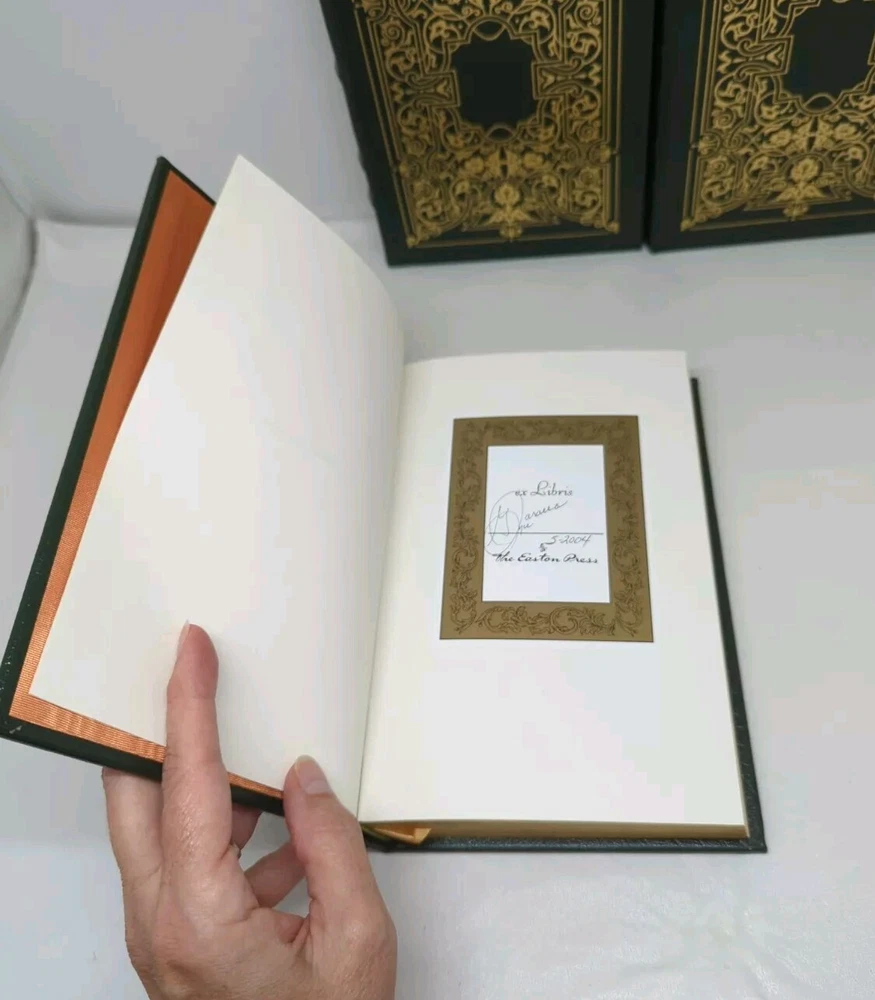 ex Libris
5-2004
The Easton Press